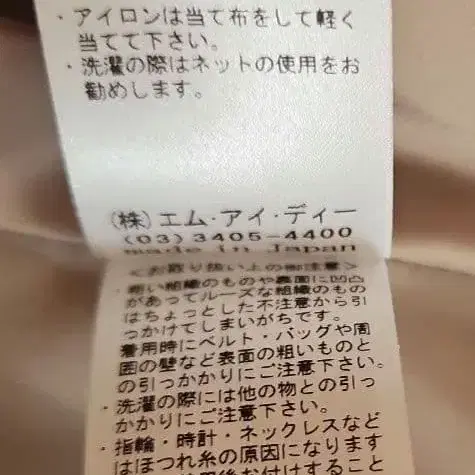 ・アイロンは当て布をして軽く
当てて下さい。
・洗濯の際はネットの使用をお
勧めします。
(株)エム・アイ・ディー
(03)3405-4400
made in Japan
<お取り扱い上の御注意>
・粗い組織のものや表面に凹凸
があってルーズな組織のもの
はちょっとした不注意から引
っかけてしまいがちです。
着用時にベルト・バッグや周
囲の壁など表面の粗いものと
の引っかかりにご注意下さい。
・洗濯の際には他の物との引っ
かかりにご注意下さい。
・指輪・時計・ネックレスなど
はほつれ糸の原因になります
お付けすること